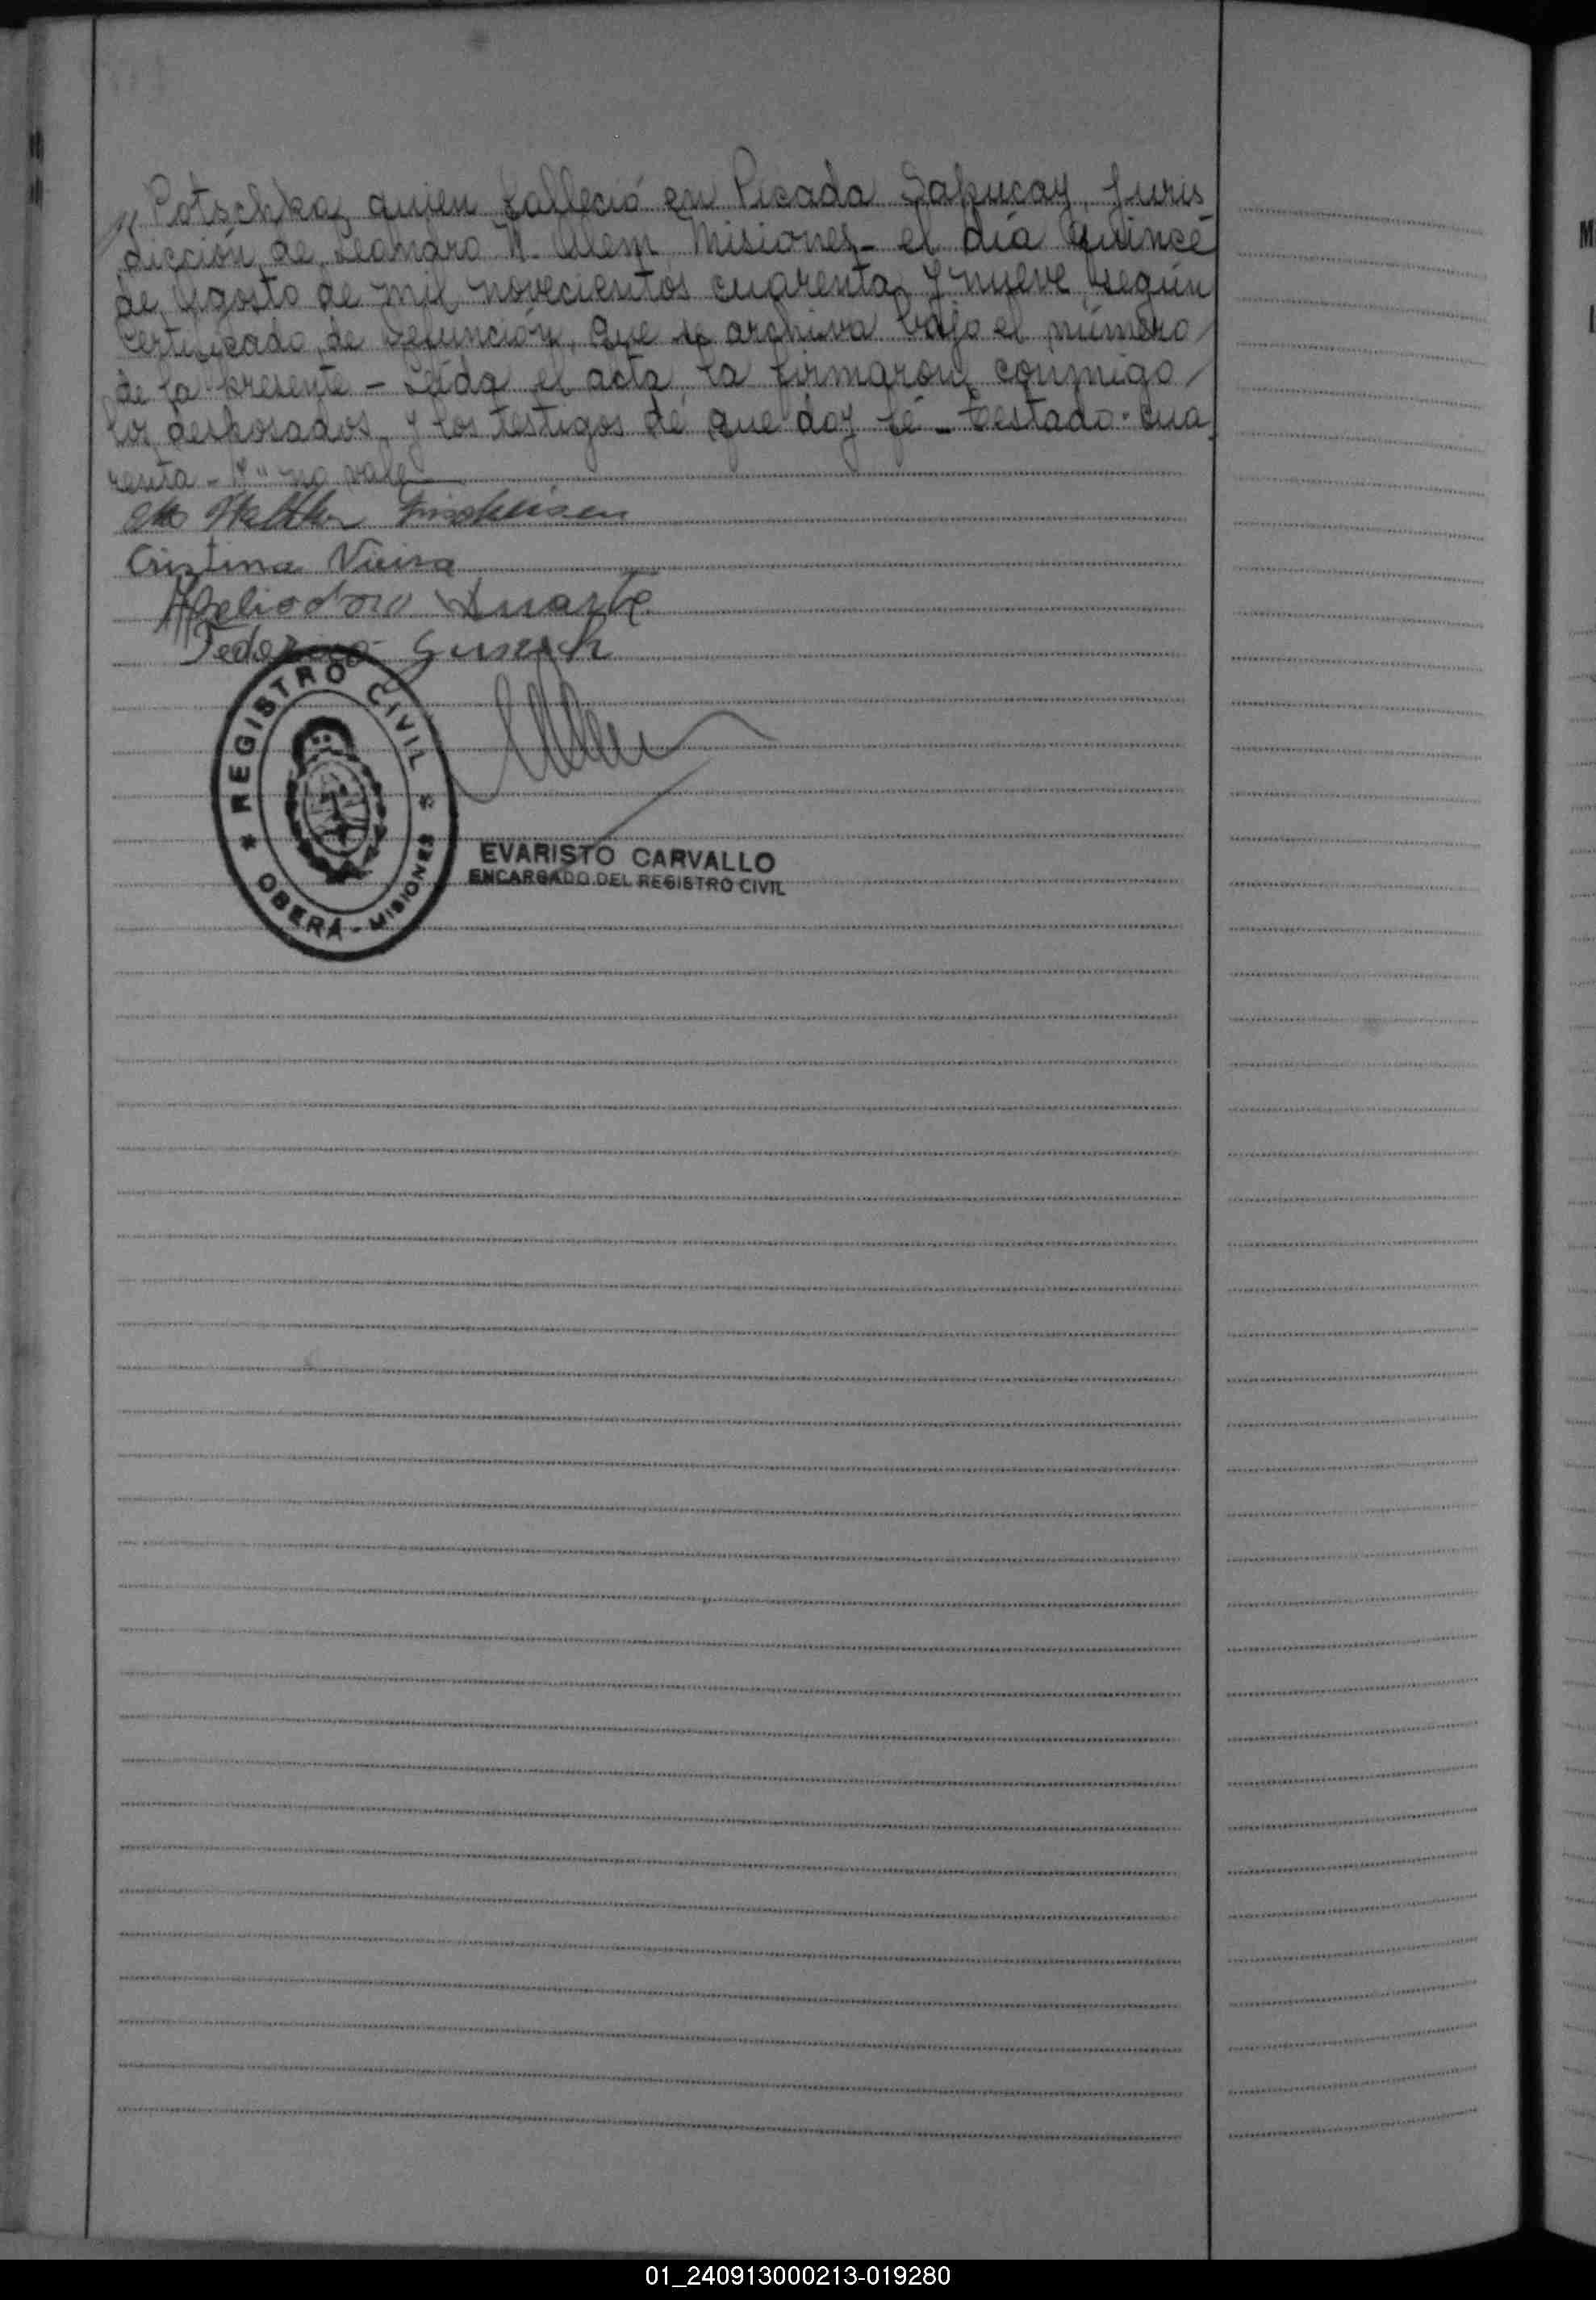 " Potschka, quien falleció en Picada Sapucay, Juris
dicción de Leandro N. Alem Misiones- el día quince
de Agosto de mil novecientos cuarenta y nueve, según
certificado de defunción, que se archiva bajo el número
de la presente - Leída el acta la firmaron conmigo
los desposados, y los testigos de que doy fé - Testado: cua
renta - no vale
Cristina Vieira
Heliodoro Duarte
Federico
REGISTRO CIVIL
OBERÁ - MISIONES
EVARISTO CARVALLO
ENCARGADO DEL REGISTRO CIVIL
M
01_240913000213-019280